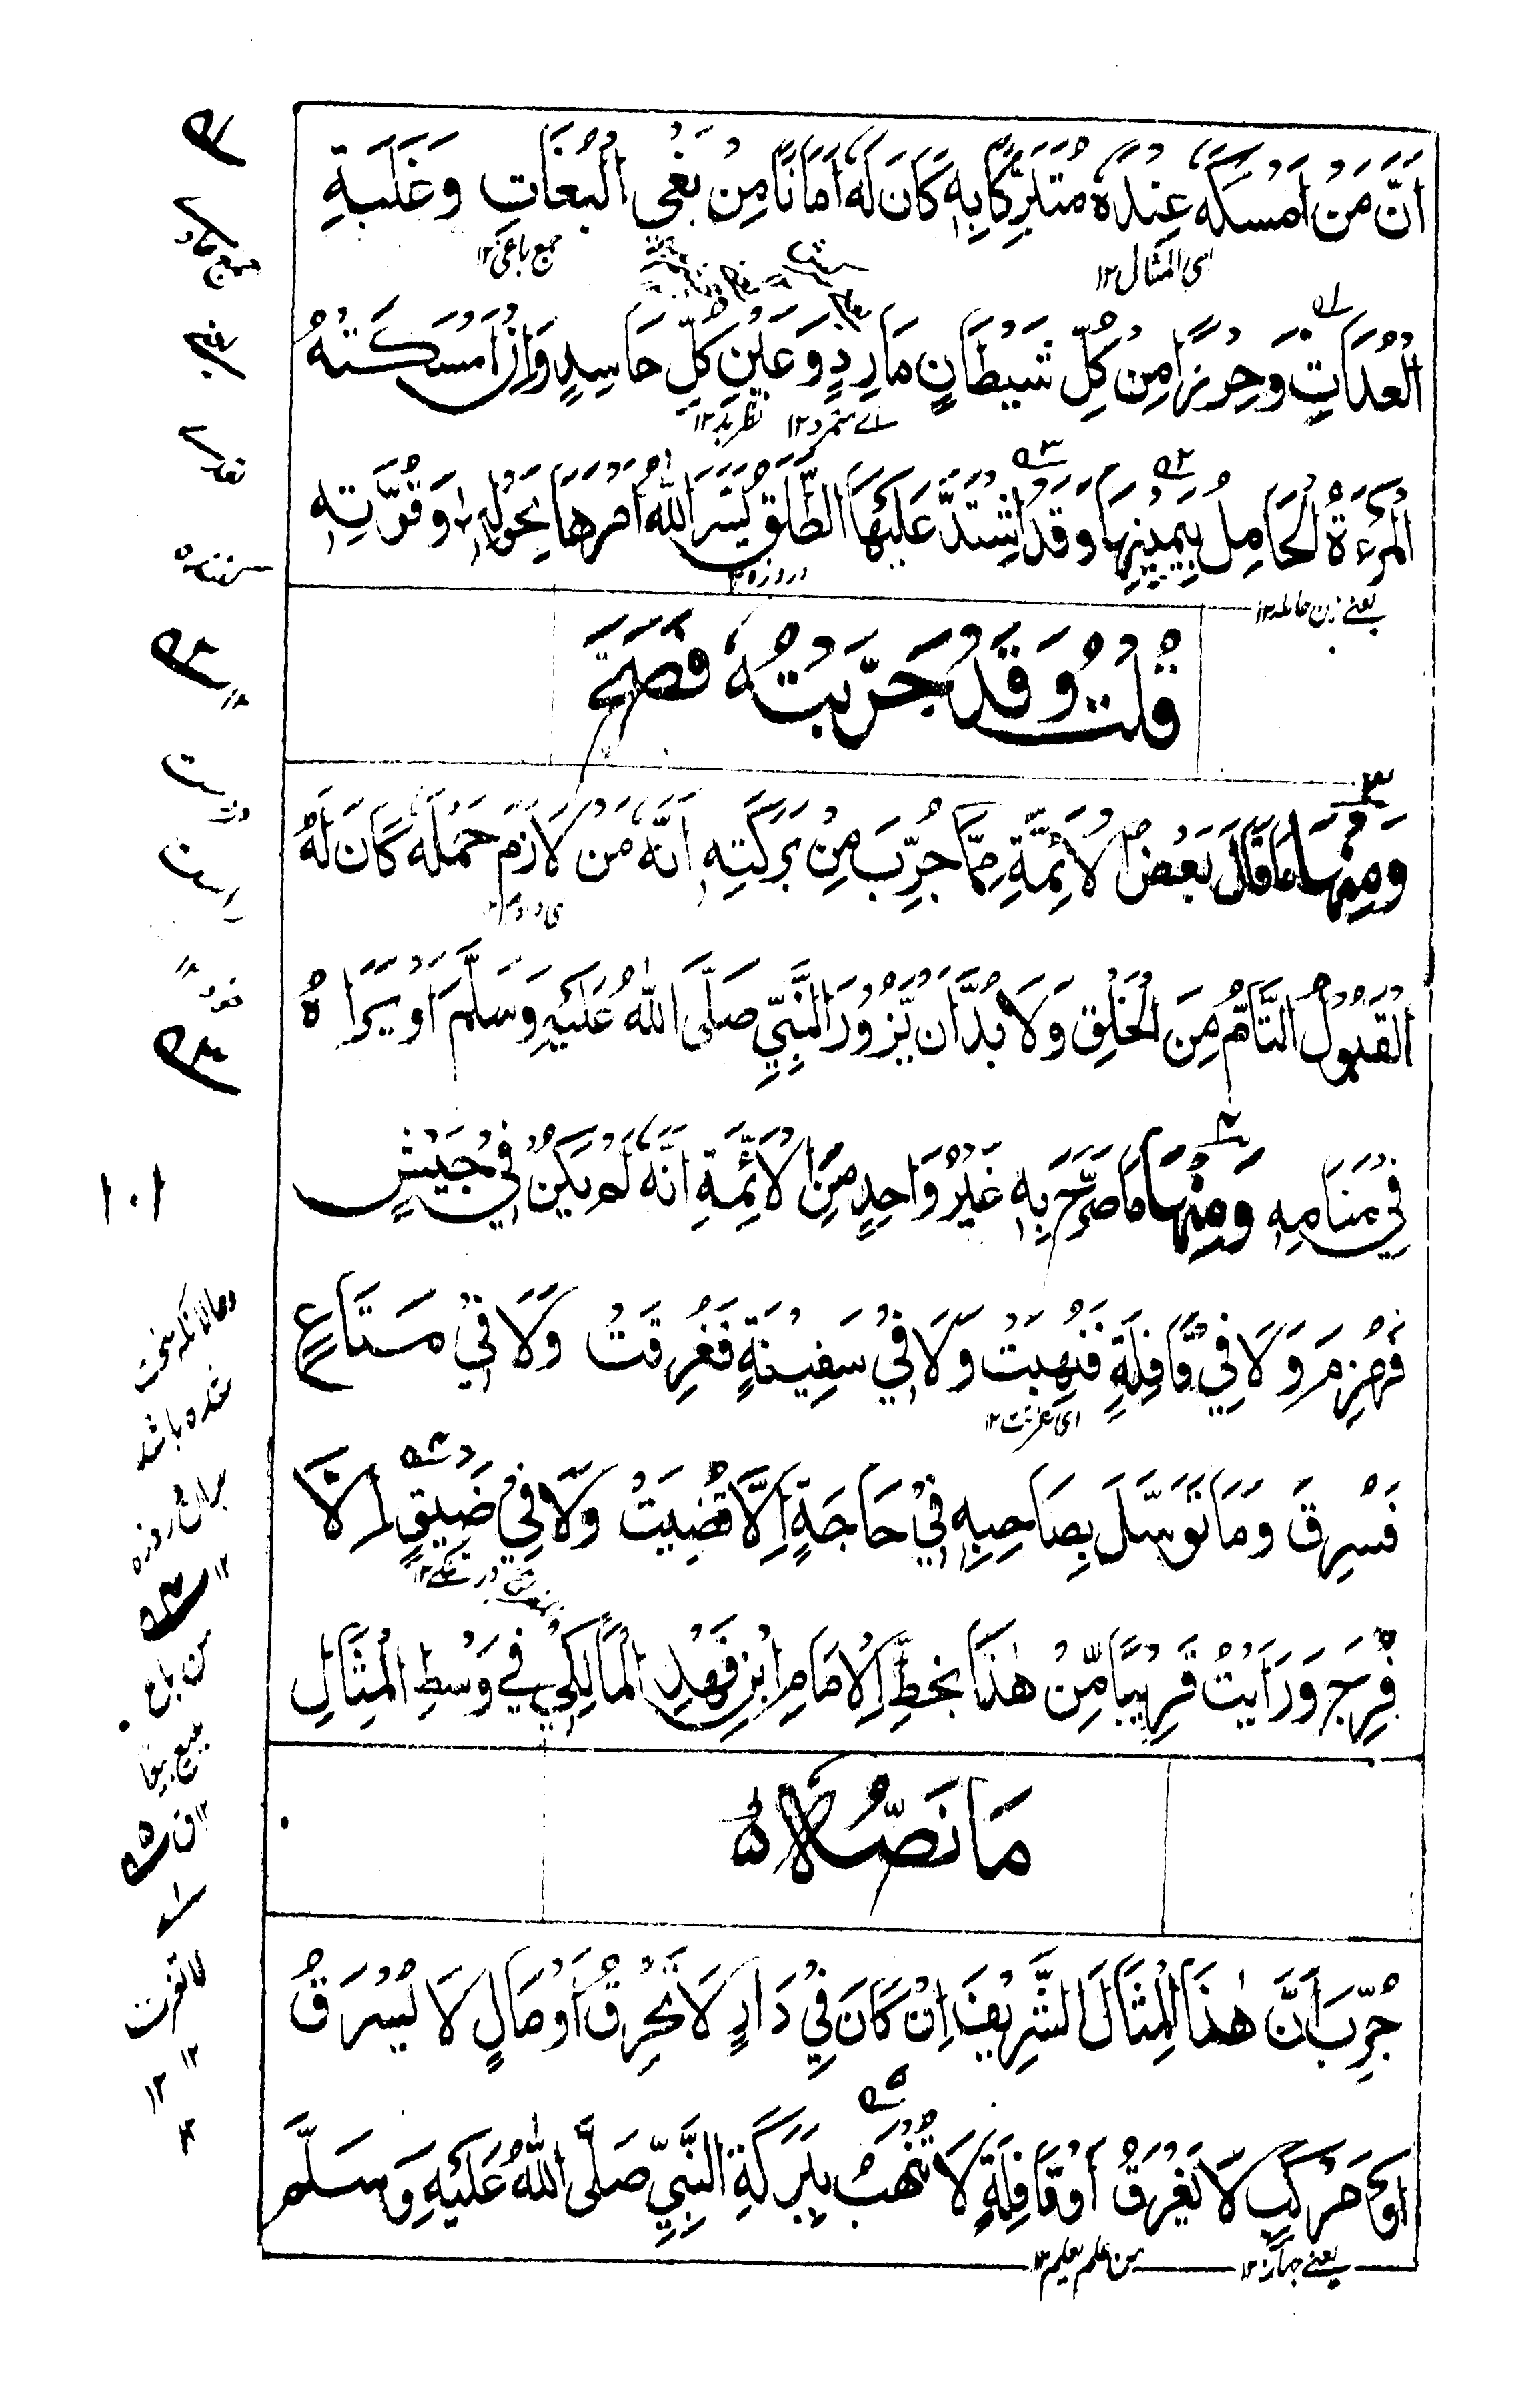 اَنَّ مَنْ اَمْسَكَهٗ عِنْدَهٗ مُتَبَرِّكًا بِهٖ كَانَ لَهٗ اَمَانًا مِنْ بَغْيِ الْبُغَاتِ وَغَلَبَةِ
اى المثال ١٢
جمع باغى ١٢
الْعُدَاتِ وَحِرْزًا مِنْ كُلِّ شَيْطَانٍ مَارِدٍ وَعَيْنِ كُلِّ حَاسِدٍ وَاِنْ اَمْسَكَتْهُ
نظر بد ١٢
الْمَرْءَةُ الْحَامِلُ بِيَمِيْنِهَا وَقَدِ اشْتَدَّ عَلَيْهَا الطَّلْقُ يَسَّرَ اللّٰهُ اَمْرَهَا بِحَوْلِهٖ وَقُوَّتِهٖ
يعنے زن حامله ١٢
قُلْتُ وَقَدْ جَرَّبْتُهٗ فَصَحَّ
وَمِنْهَا مَا قَالَ بَعْضُ الْاَئِمَّةِ مِمَّا جُرِّبَ مِنْ بَرَكَتِهٖ اَنَّهٗ مَنْ لَازَمَ حَمْلَهٗ كَانَ لَهُ
الْقَبُوْلُ التَّامُّ مِنَ الْخَلْقِ وَلَا بُدَّ اَنْ يَّزُوْرَ النَّبِيَّ صَلَّى اللّٰهُ عَلَيْهِ وَسَلَّمَ اَوْ يَرَاهُ
فِيْ مَنَامِهٖ وَمِنْهَا مَا صَرَّحَ بِهٖ غَيْرُ وَاحِدٍ مِنَ الْاَئِمَّةِ اَنَّهٗ لَمْ يَكُنْ فِيْ جَيْشٍ
فَهُزِمَ وَلَا فِيْ قَافِلَةٍ فَنُهِبَتْ وَلَا فِيْ سَفِيْنَةٍ فَغَرِقَتْ وَلَا فِيْ مَتَاعٍ
فَسُرِقَ وَمَا تُوُسِّلَ بِصَاحِبِهٖ فِيْ حَاجَةٍ اِلَّا قُضِيَتْ وَلَا فِيْ ضَيْقٍ اِلَّا
فُرِجَ وَرَاَيْتُ قَرِيْبًا مِّنْ هٰذَا بِخَطِّ الْاِمَامِ ابْنِ فَهْدِ الْمَالِكِيْ فِيْ وَسْطِ الْمِثَالِ
مَا نَصُّهٗ
جُرِّبَ اَنَّ هٰذَا الْمِثَالَ الشَّرِيْفَ اِنْ كَانَ فِيْ دَارٍ لَا تُحْرَقُ اَوْ مَالٍ لَا يُسْرَقُ
اَوْ مَرْكَبٍ لَا يَغْرَقُ اَوْ قَافِلَةٍ لَا تُنْهَبُ بِبَرَكَةِ النَّبِيِّ صَلَّى اللّٰهُ عَلَيْهِ وَسَلَّمَ
يعنے جهاز ١٢
من علم يعلم ١٢
١٠١